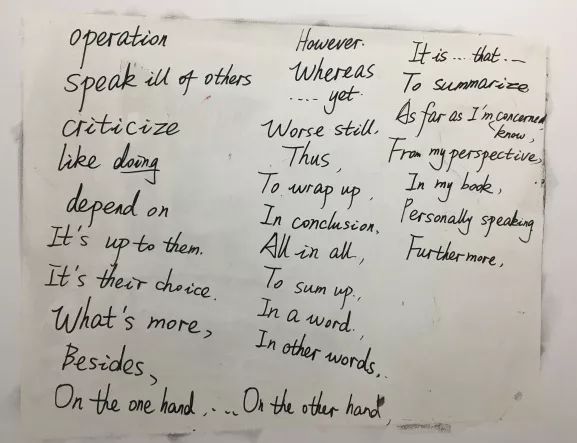 operation
speak ill of others
criticize
like doing
depend on
It's up to them.
It's their choice.
What's more,
Besides,
On the one hand, .... On the other hand,
However.
Whereas
.... yet
Worse still,
Thus,
To wrap up,
In conclusion,
All in all,
To sum up,
In a word.
In other words,
It is ... that...
To summarize
As far as I'm concerned
know,
From my perspective,
In my book,
Personally speaking
Furthermore,